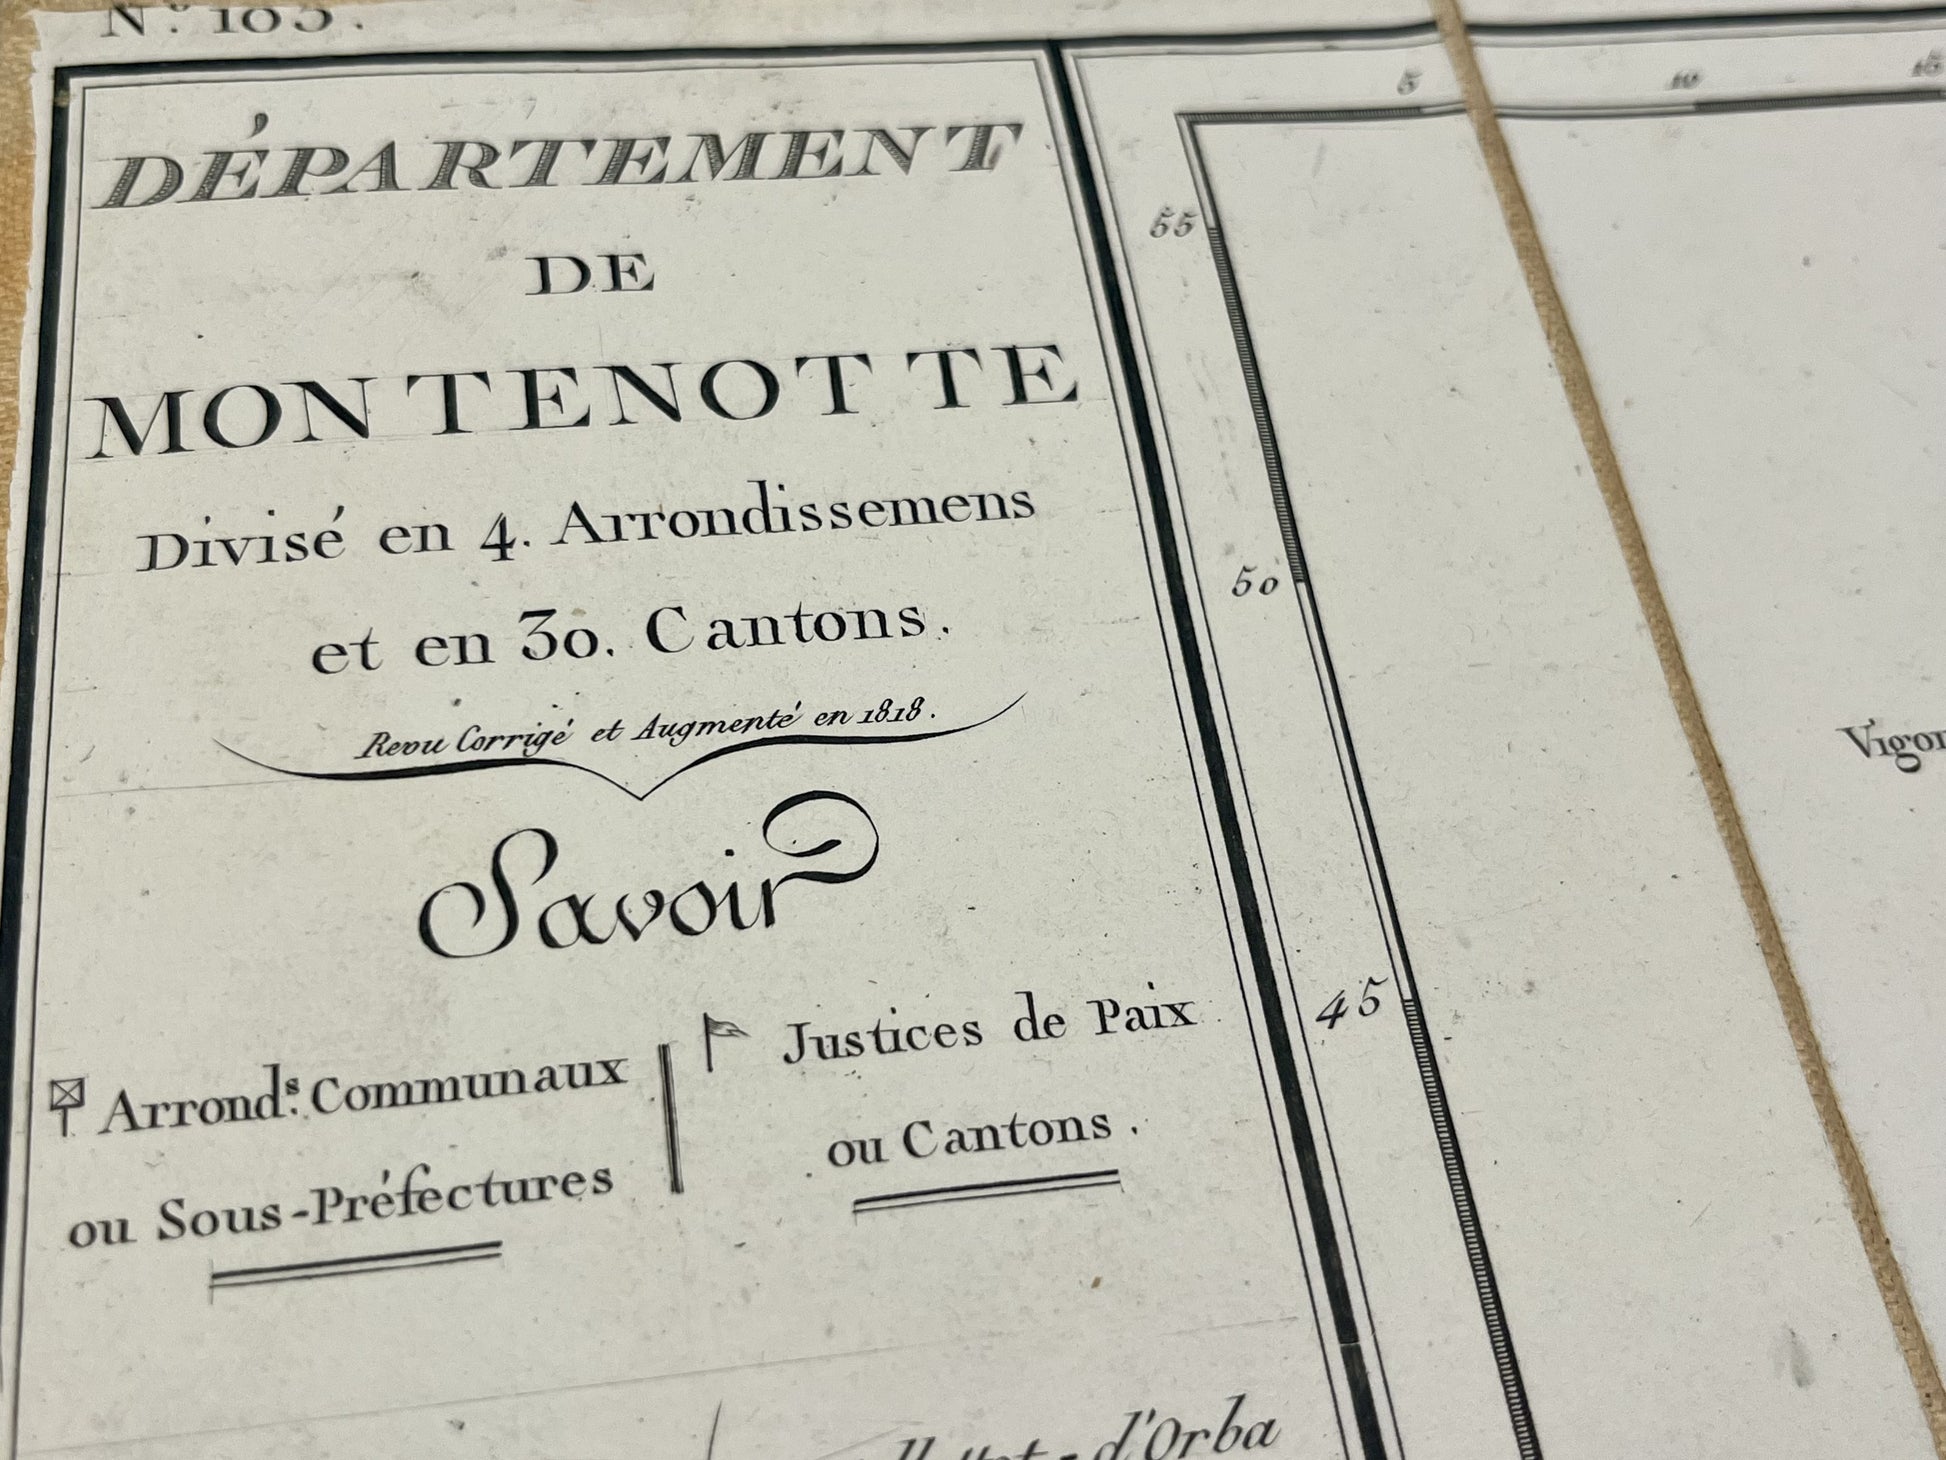 Nº. 103.
DÉPARTEMENT
DE
MONTENOTTE
Divisé en 4. Arrondissemens
et en 30. Cantons.
Revu Corrigé et Augmenté en 1818.
Savoir
Arronds. Communaux
ou Sous-Préfectures
Justices de Paix
ou Cantons.
d'Orba
5
10
15
55
50
45